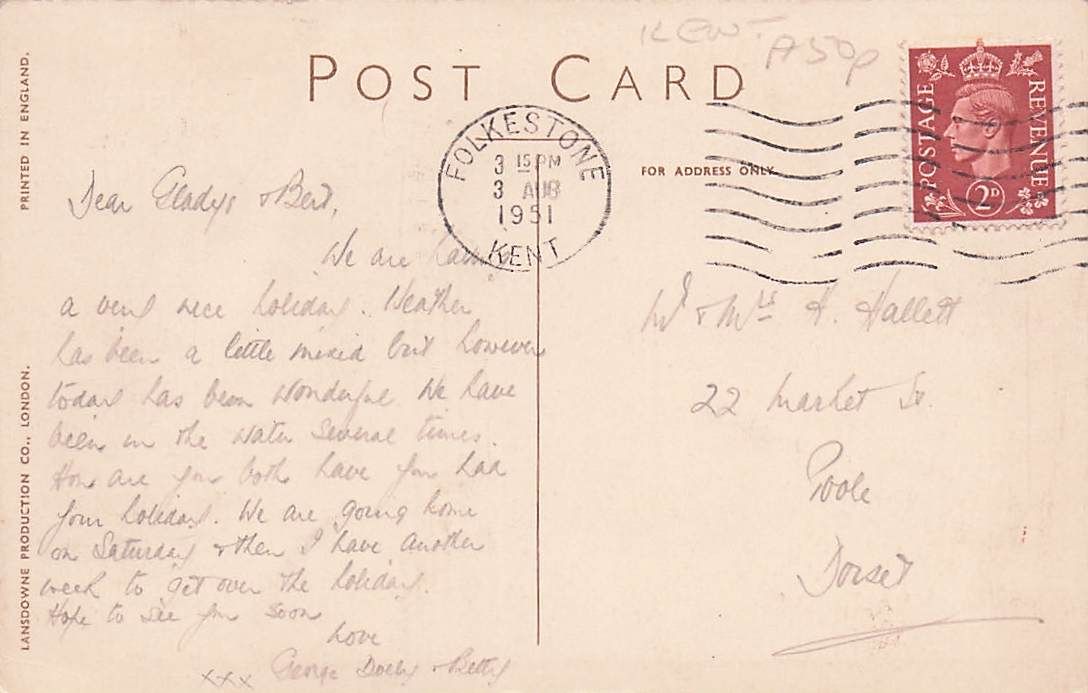 KENT
A50p
POST CARD
FOLKESTONE
3 15 PM
3 AUG
1951
KENT
POSTAGE
REVENUE
2D
FOR ADDRESS ONLY
PRINTED IN ENGLAND.
LANSDOWNE PRODUCTION CO., LONDON.
Dear Gladys & Bert,
We are having
a very nice holiday. Weather
has been a little mixed but however
today has been wonderful. We have
been in the water several times.
How are you both have you had
your holiday. We are going home
on Saturday & then I have another
week to get over the holiday.
Hope to see you soon
Love
xxx George & Betty
Mr & Mrs H. Hallett
22 Market St.
Poole
Dorset